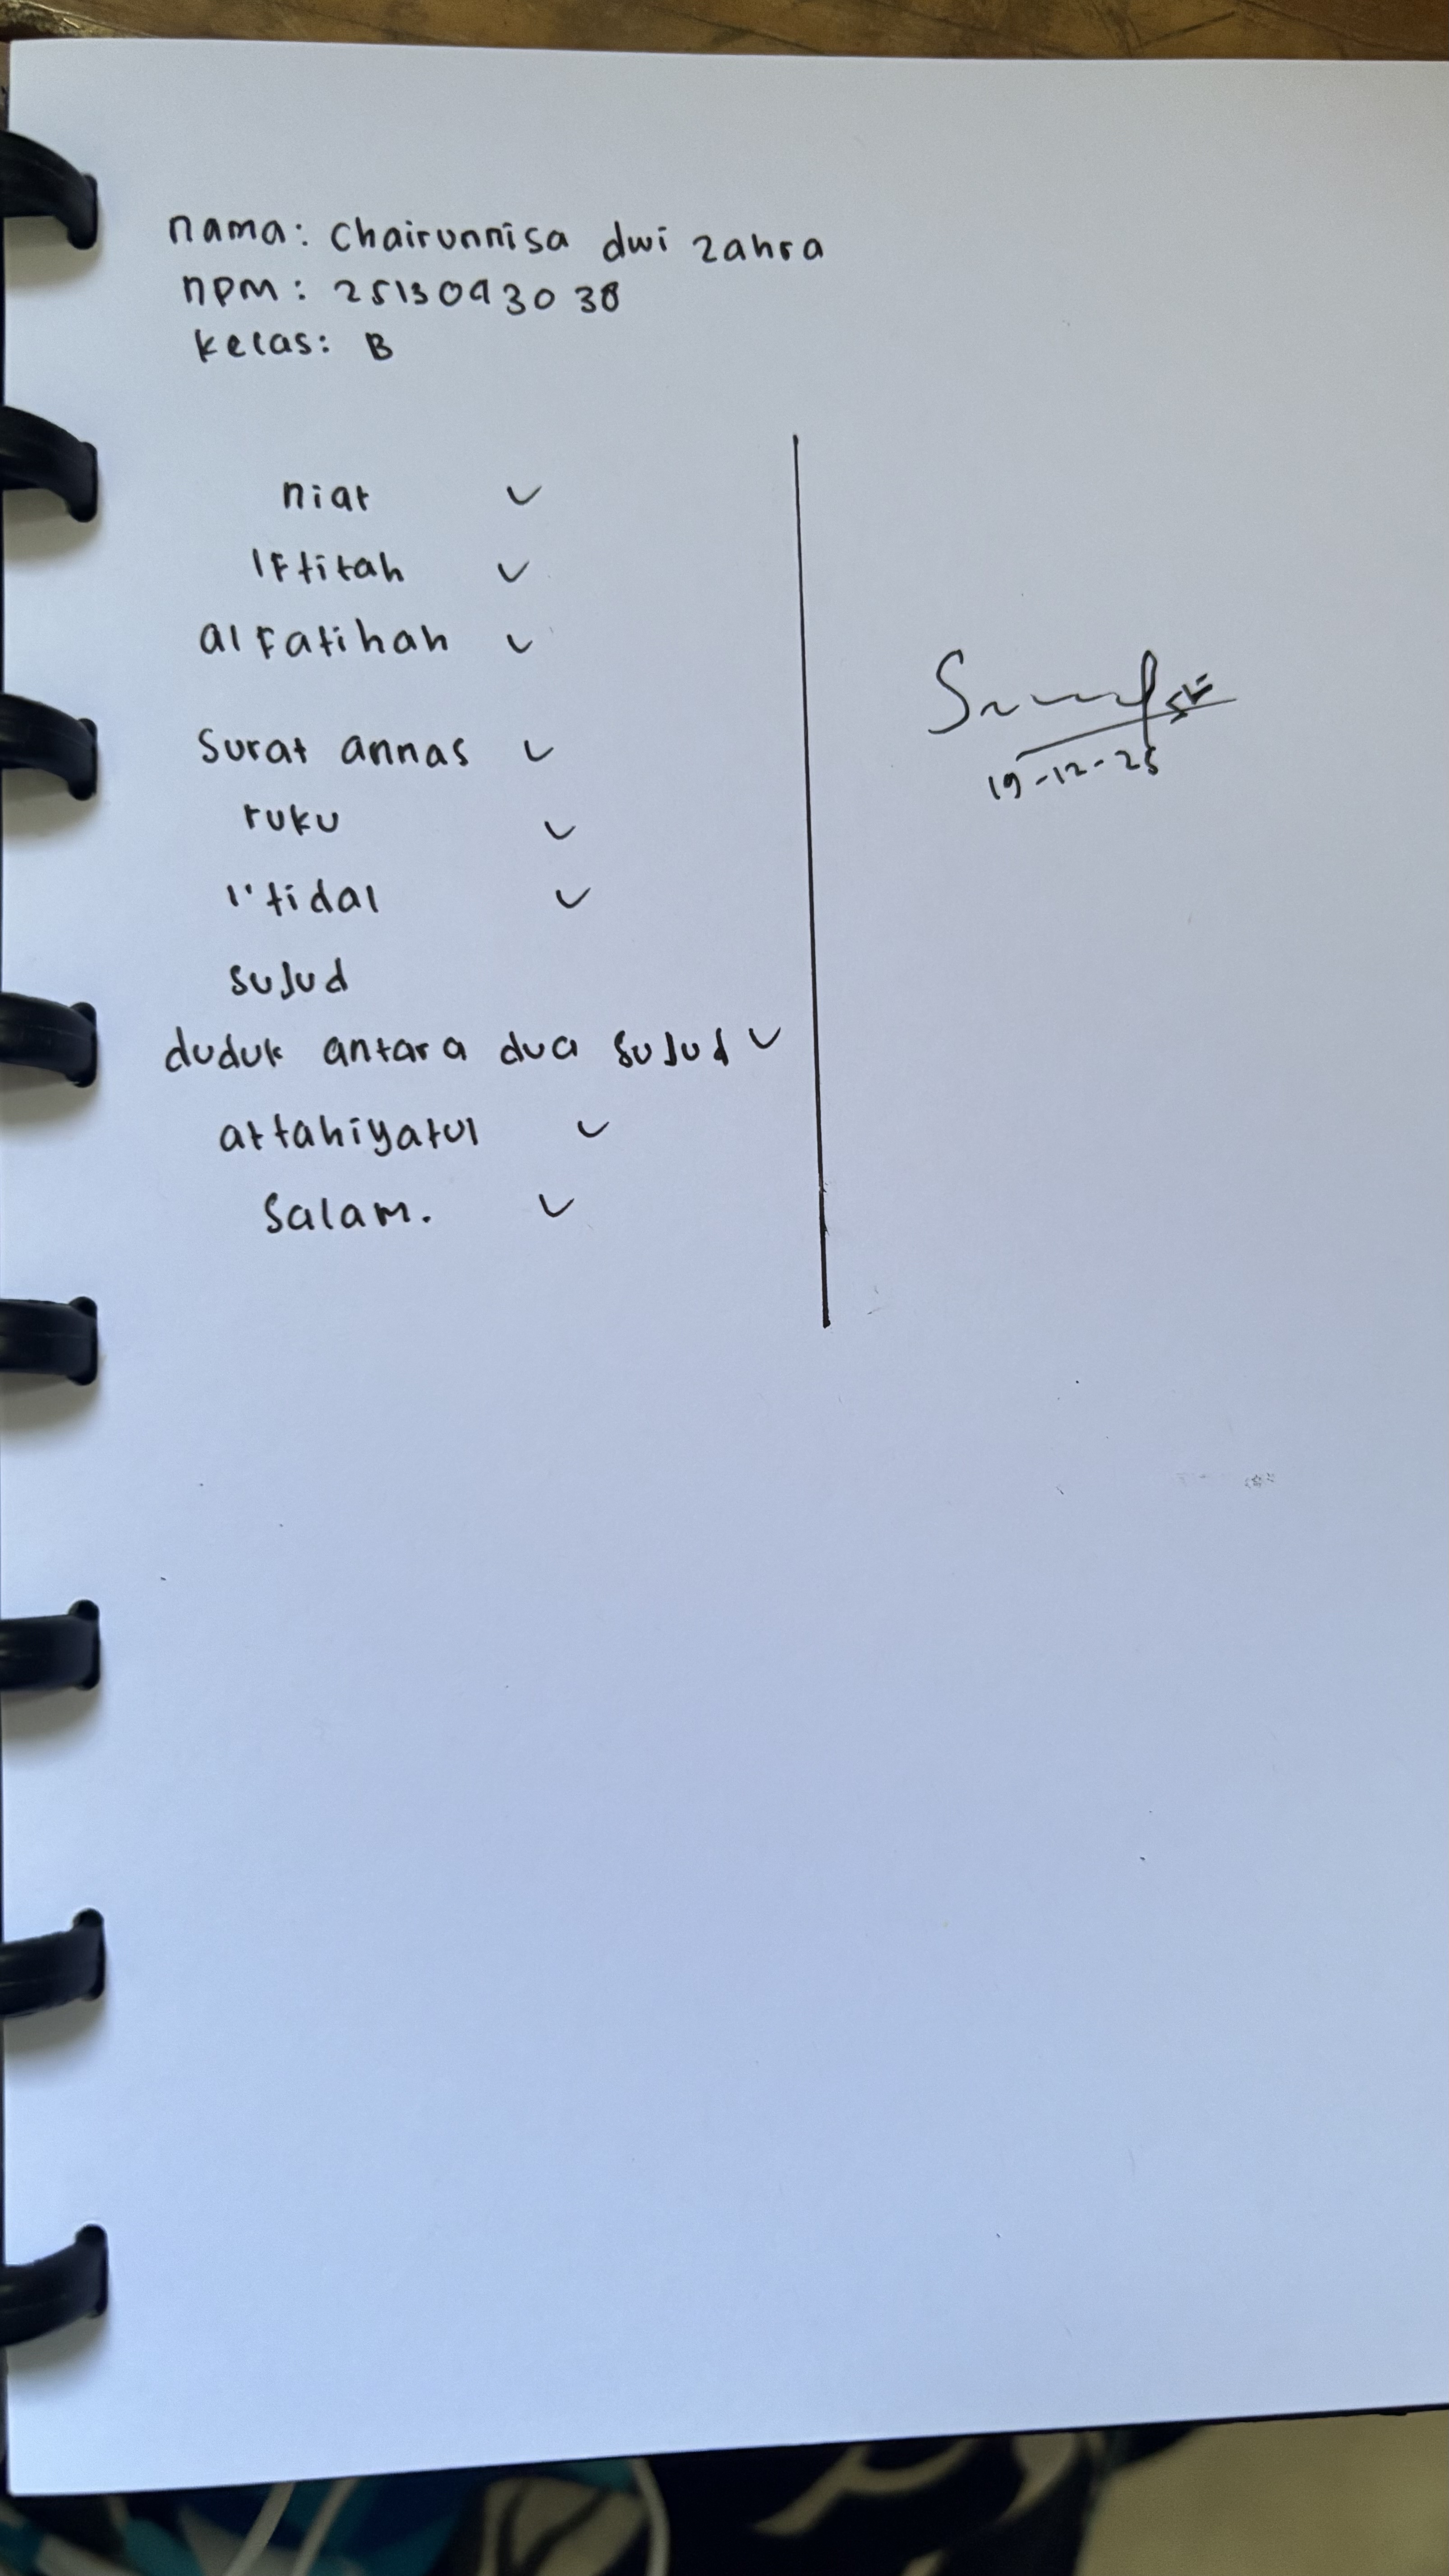 nama: Chairunnisa dwi zahra
npm: 2513093038
kelas: B
niat ✓
Iftitah ✓
alfatihah ✓
Surat annas ✓
ruku ✓
i'tidal ✓
sujud
duduk antara dua sujud ✓
attahiyatul ✓
Salam. ✓
19-12-25